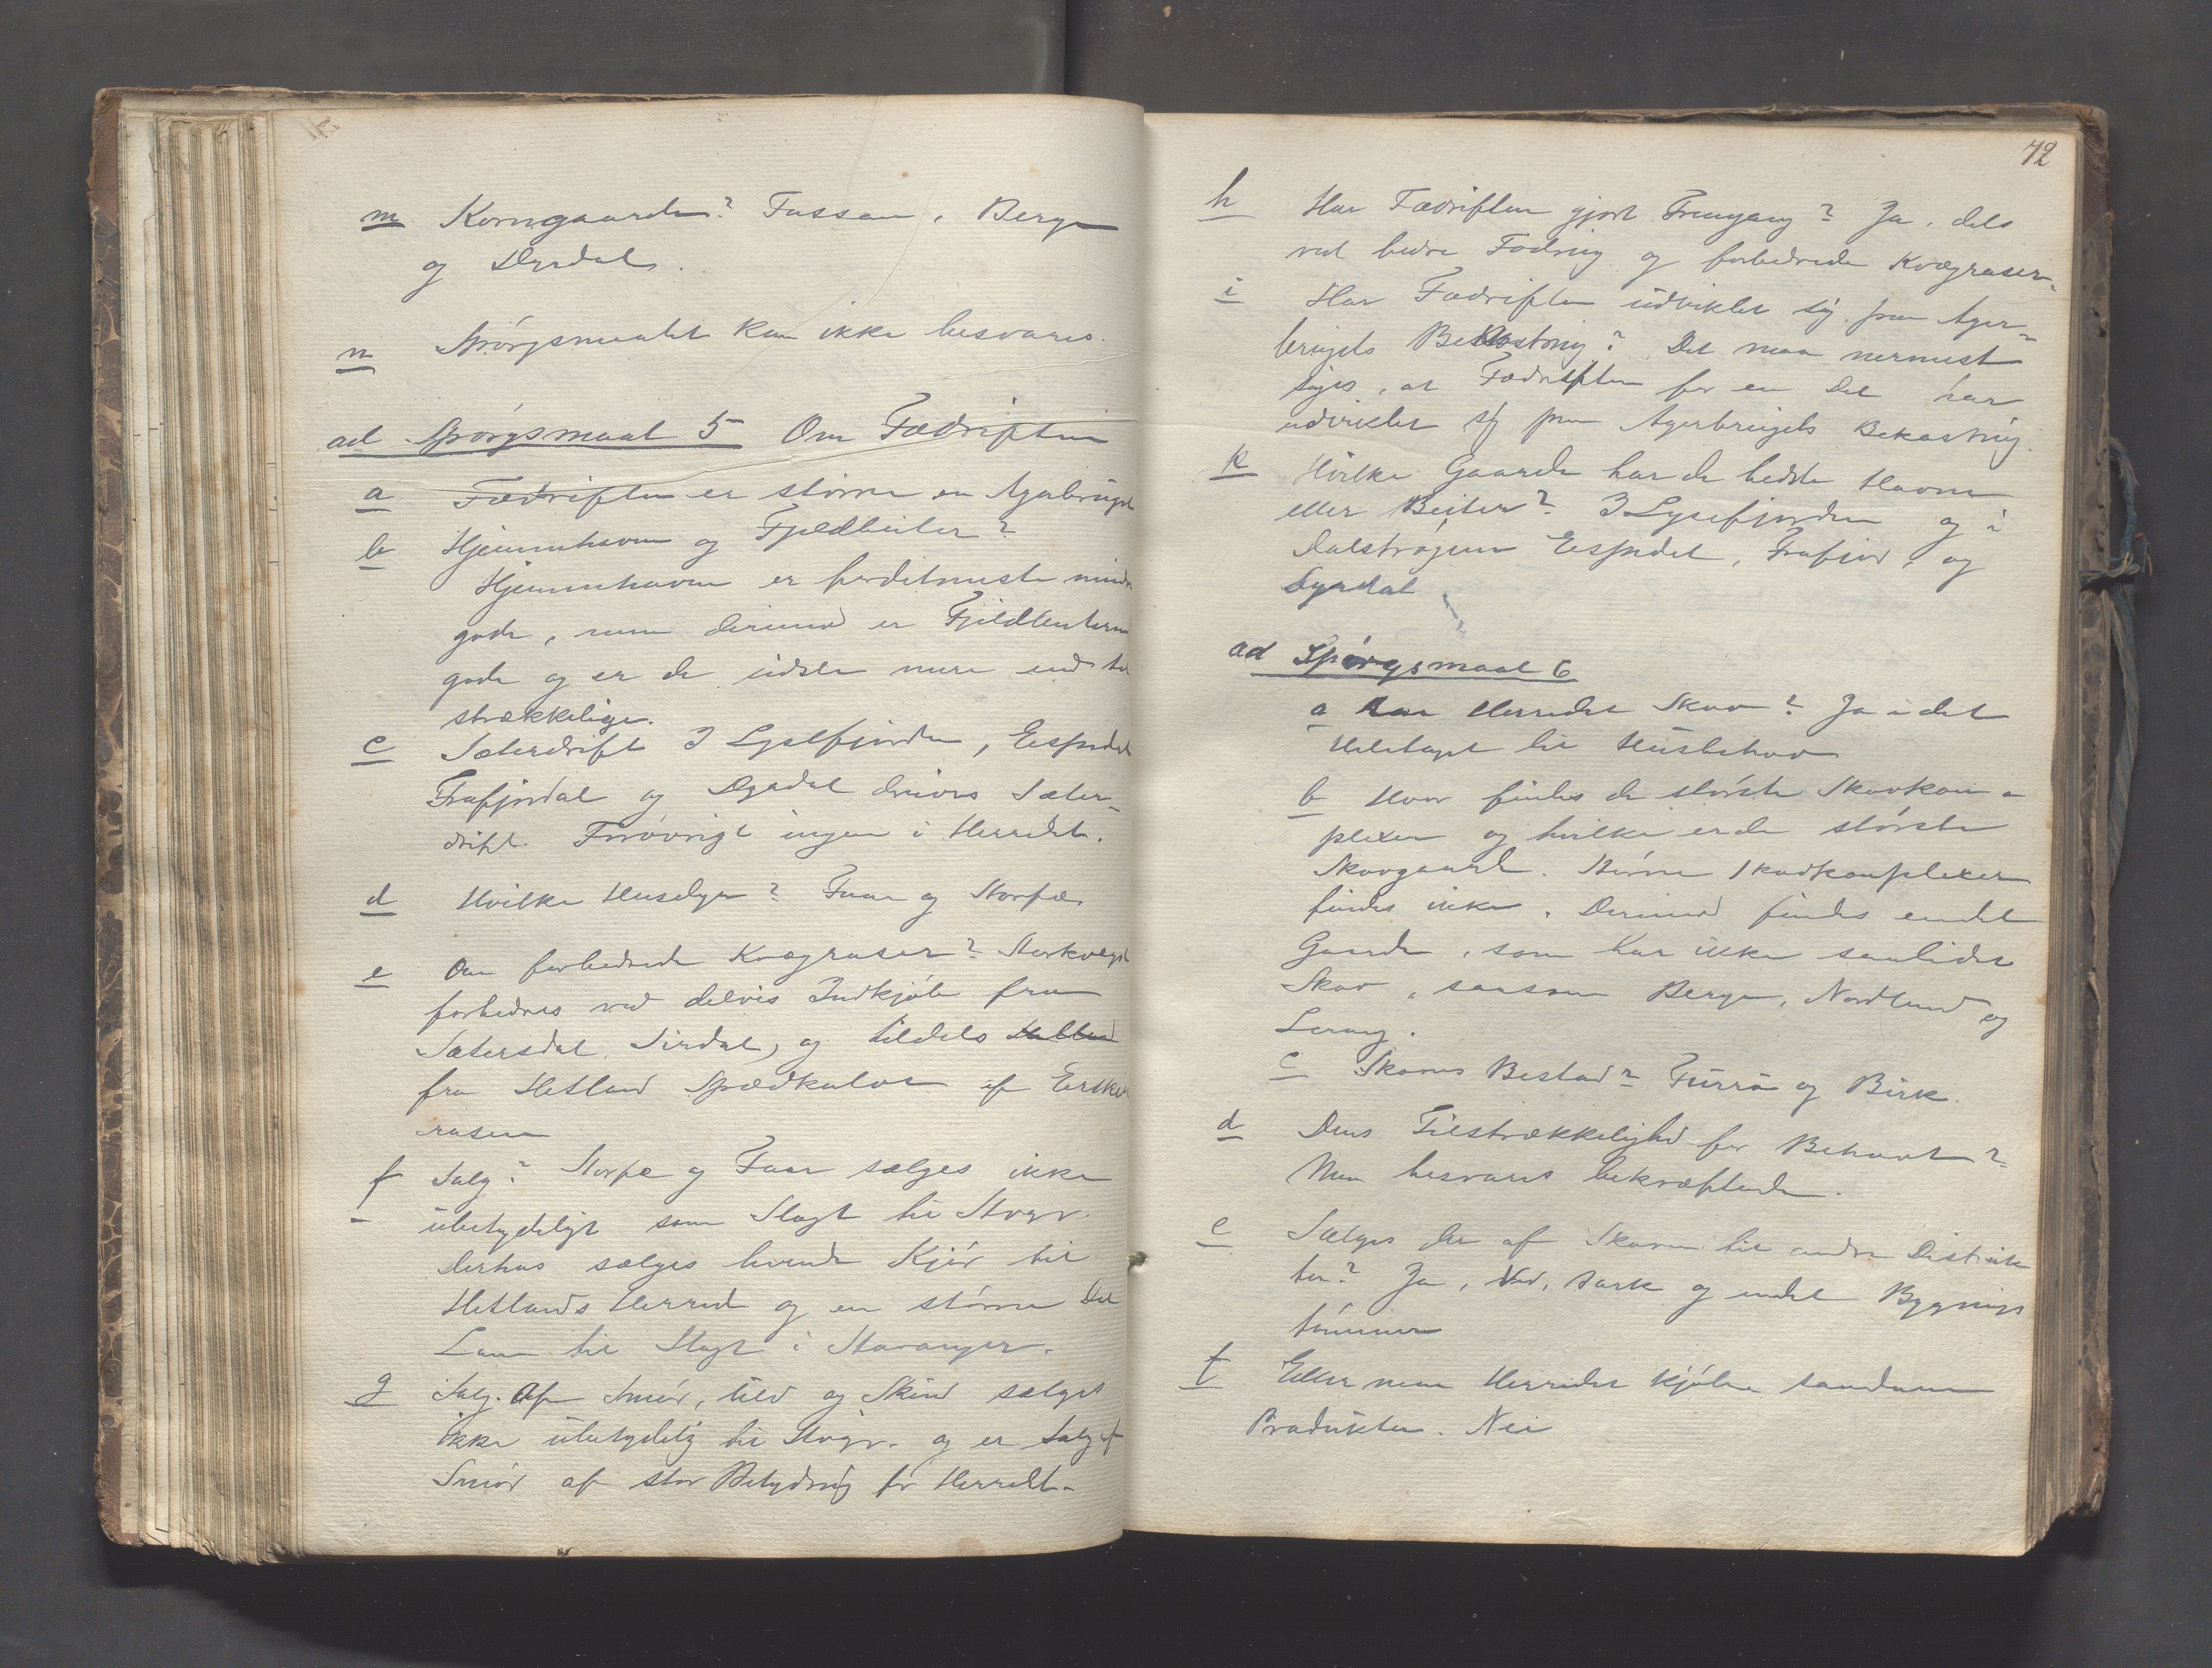 m Korngaarde? Fossan, Berge
og Dyrdal.
n Spörgsmaalet kan ikke besvares.
ad Spörgsmaal 5 Om Fædriften
a Fædriften er större en Agerbruget
b Hjemmehavne og Fjeldbeiter?
Hjemmehavnen er fordetmeste mindre
gode, men derimod er Fjeldbeiterne
gode og er de sidste mere end til
strækkelige.
c Sæterdrift I Lysefjorden, Espedal
Frafjordal og Dyrdal drives Sæter-
drift. Forövrigt ingen i Herredet.
d Hvilke Husdyr? Faar og Storfæ.
e Om forbedrede Kvægraser? Storkvæget
forbedres ved delvis Indkjöb fra
Sætersdal, Sirdal, og tildels
fra Hetland Spædkalve af
rasen
f Salg? Storfæ og Faar sælges ikke
ubetydeligt som Slagt til Stvgr.
Derhos sælges levende Kjör til
Hetlands Herred og en större Del
Lam til Slagt i Stavanger.
g Salg. Af Smör, Uld og Skind sælges
ikke ubetydelig til Stvgr. og er Salg af
Smör af stor Betydning for Herredet.
72
h Har Fædriften gjort Fremgang? Ja, dels
ved bedre Fodring og forbedrede Kvægraser.
i Har Fædriften udviklet sig paa Ager-
brugets Bekostning? Det maa nermest
siges, at Fædriften for en Del har
udviklet sig paa Agerbrugets Bekostning.
k Hvilke Gaarde har de bedste Havne
eller Beiter? I Lysefjorden og i
Dalströgene Espedal, Frafjord, og
Dyrdal
ad Spörgsmaal 6
a Har Herredet Skov? Ja i det
Heletaget til Husbehov
b Hvor findes de störste Skovkom-
plexer og hvilke er de störste
Skovgaarde. Större Skovkomplexer
findes ikke. Derimod findes endel
Gaarde, som har ikke saa lidet
Skov, saasom Berge, Nordland og
Lerang.
c Skovens Bestand? Furru og Birk.
d Dens Tilstrækkelighed for Behovet?
Maa besvares bekræftende.
e Sælges der af Skoven til andre Distrik
ter? Ja, Ved, Bark og endel Bygnings
tömmer
f Eller maa Herredet kjöbe saadanne
Produkter. Nei